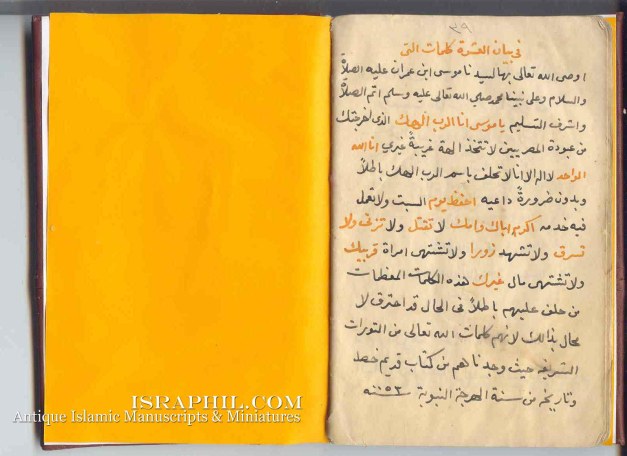 ٣٩
في بيان العشرة كلمات التي
اوصى الله تعالى بها لسيدنا موسى ابن عمران عليه الصلاة
والسلام وعلى نبينا محمد صلي الله تعالى عليه وسلم اتم الصلاة
واشرف التسليم يا موسى انا الرب الهك الذى اخرجتك
من عبودة المصريين لا تتخذ الهة غريبة غيري انا الله
الواحد لا اله الا انا لا تحلف باسم الرب الهك باطلاً
وبدون ضرورة داعيه احفظ يوم السبت ولا تعمل
فيه خدمه اكرم اباك وامك لا تقتل ولا تزني ولا
تسرق ولا تشهد زورا ولا تشتهى امراة قريبك
ولا تشتهى مال غيرك هذه الكلمات المعظمات
من حلف عليهم باطلاً في الحال قد احترق لا
محال بذالك لانهم كلمات الله تعالى من التورات
الشريفه حيث وجدناهم من كتاب قديم خط
وتاريخه من سنة الهجرة النبوية سنه
ISRAPHIL.COM
Antique Islamic Manuscripts & Miniatures